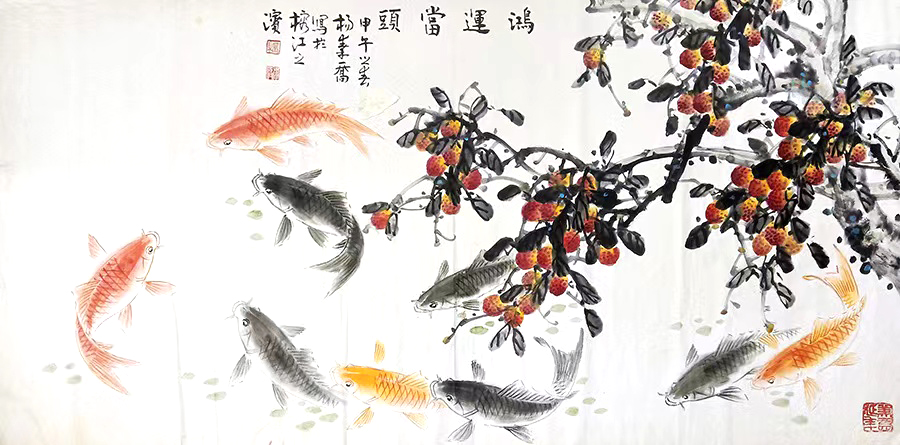 鴻運當頭
甲午之春
楊喬
寫於
榕江之
濱